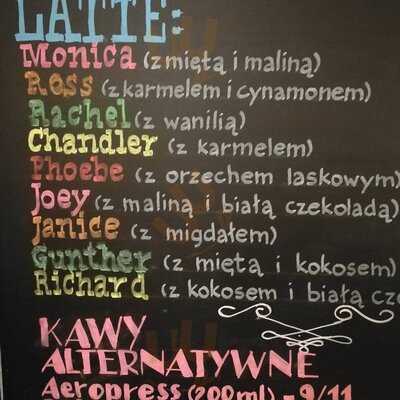 LATTE:
Monica (z miętą i maliną)
Ross (z karmelem i cynamonem)
Rachel (z wanilią)
Chandler (z karmelem)
Phoebe (z orzechem laskowym)
Joey (z maliną i białą czekoladą)
Janice (z migdałem)
Gunther (z miętą i kokosem)
Richard (z kokosem i białą cze
KAWY
ALTERNATYWNE
Aeropress (200ml) - 9/11